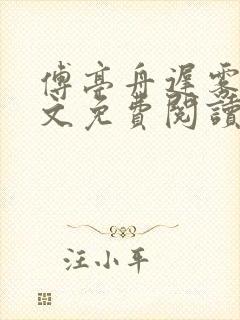 傅亭舟遲霧
文免費閱讀
汪小平